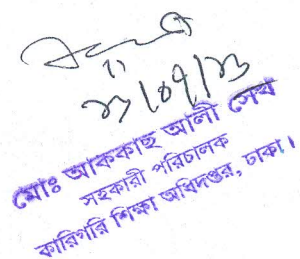 ২৩/০৭/২৩
মোঃ আককাছ আলী সেখ
সহকারী পরিচালক
কারিগরি শিক্ষা অধিদপ্তর, ঢাকা।